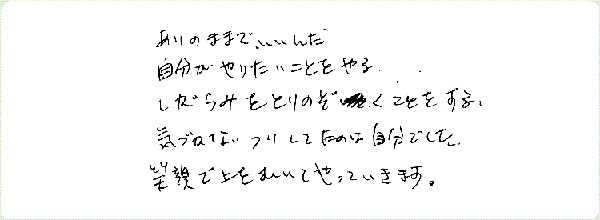 ありのままでいいんだ
自分がやりたいことをやる...
しがらみをとりのぞくことをする。
気づかないフリしてたのは自分でした。
笑顔で上をむいてやっていきます。